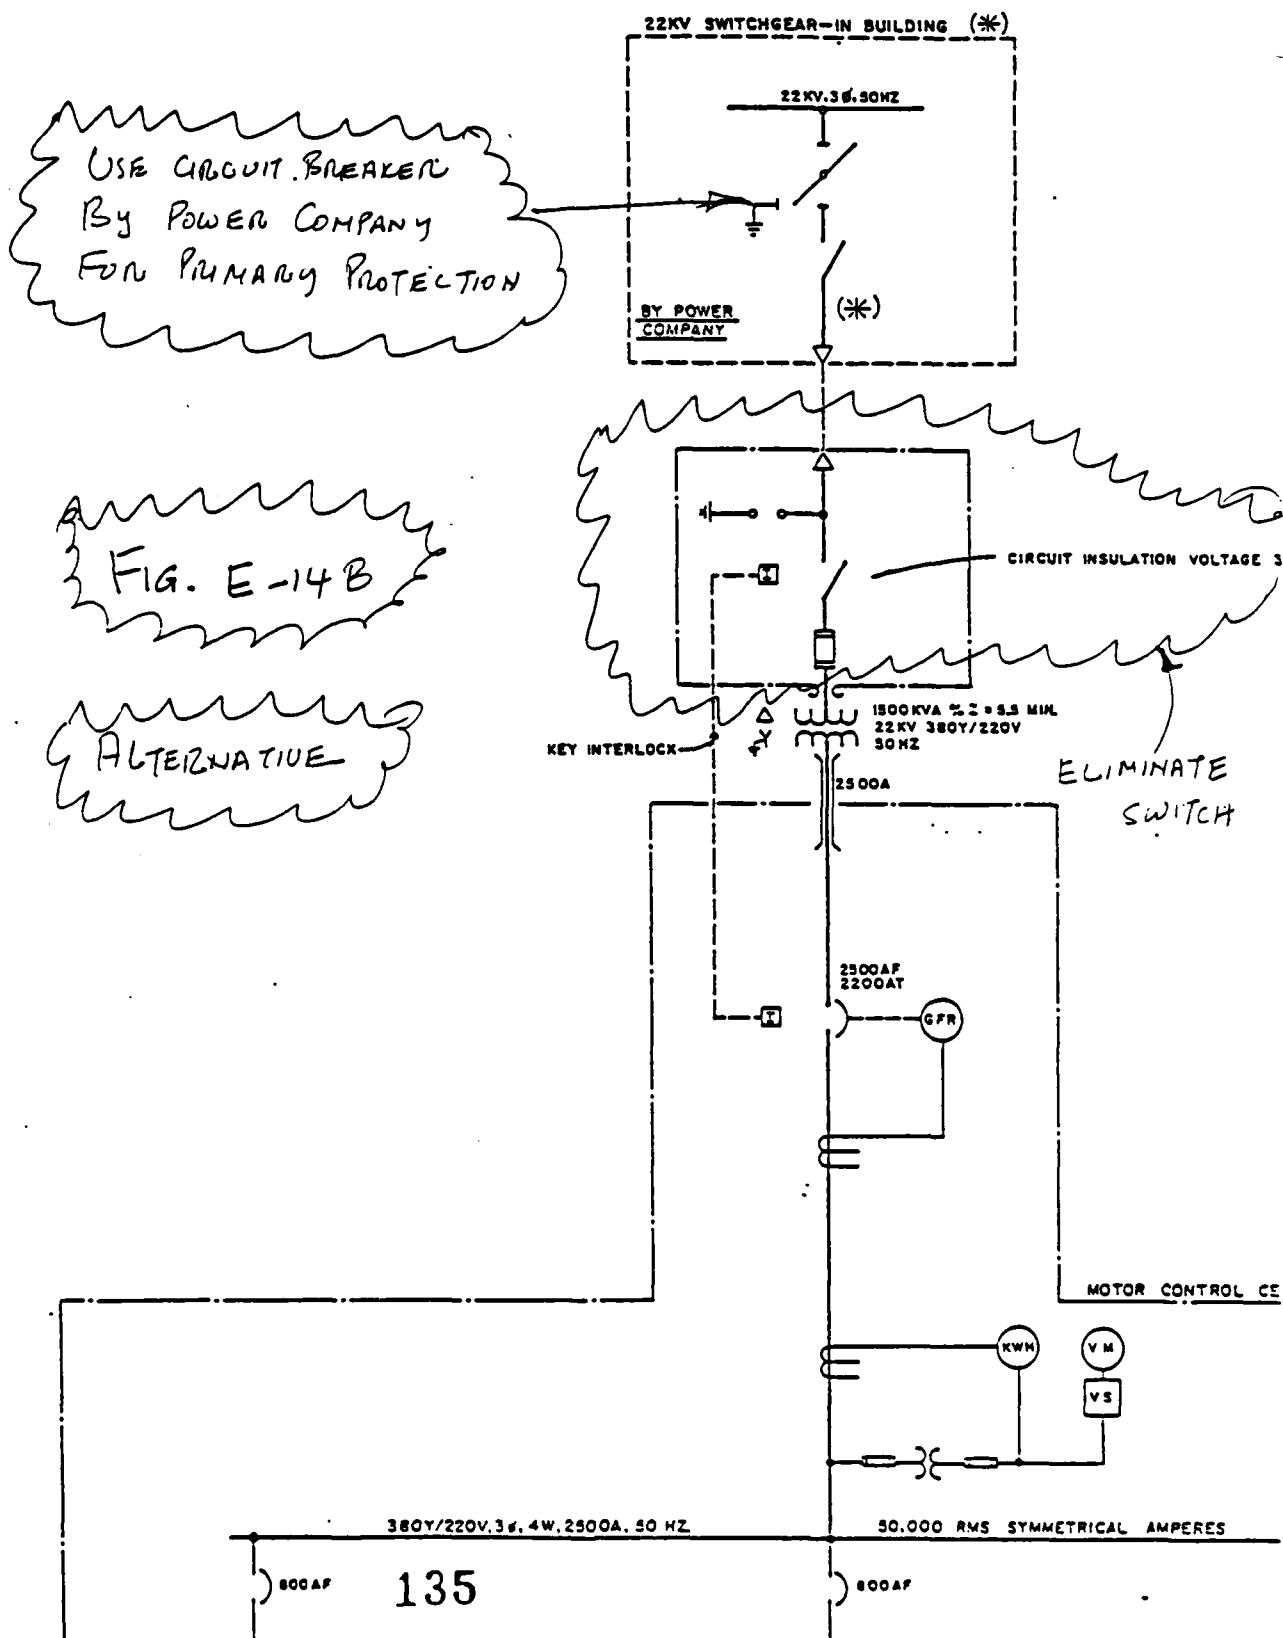 22KV SWITCHGEAR-IN BUILDING (*)
22KV.3Ø.50HZ
USE CIRCUIT BREAKER
BY POWER COMPANY
FOR PRIMARY PROTECTION
(*)
BY POWER
COMPANY
FIG. E-14B
CIRCUIT INSULATION VOLTAGE 3
I
ALTERNATIVE
1500KVA % Z = 5.5 MIN.
22KV 380Y/220V
50HZ
KEY INTERLOCK
Δ
Y
ELIMINATE
SWITCH
2500A
2500AF
2200AT
I
GFR
MOTOR CONTROL CE
KWH
VM
VS
380Y/220V,3ø,4W,2500A,50 HZ
50,000 RMS SYMMETRICAL AMPERES
800AF
135
800AF